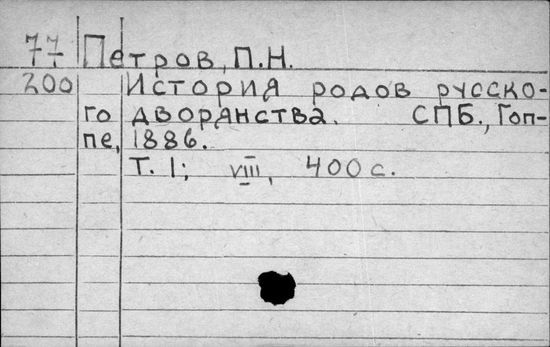 77 Петров, П.Н.
200 История родов русско-
го дворянства. СПБ., Гоп-
пе, 1886.
Т. 1; VIII, 400 с.